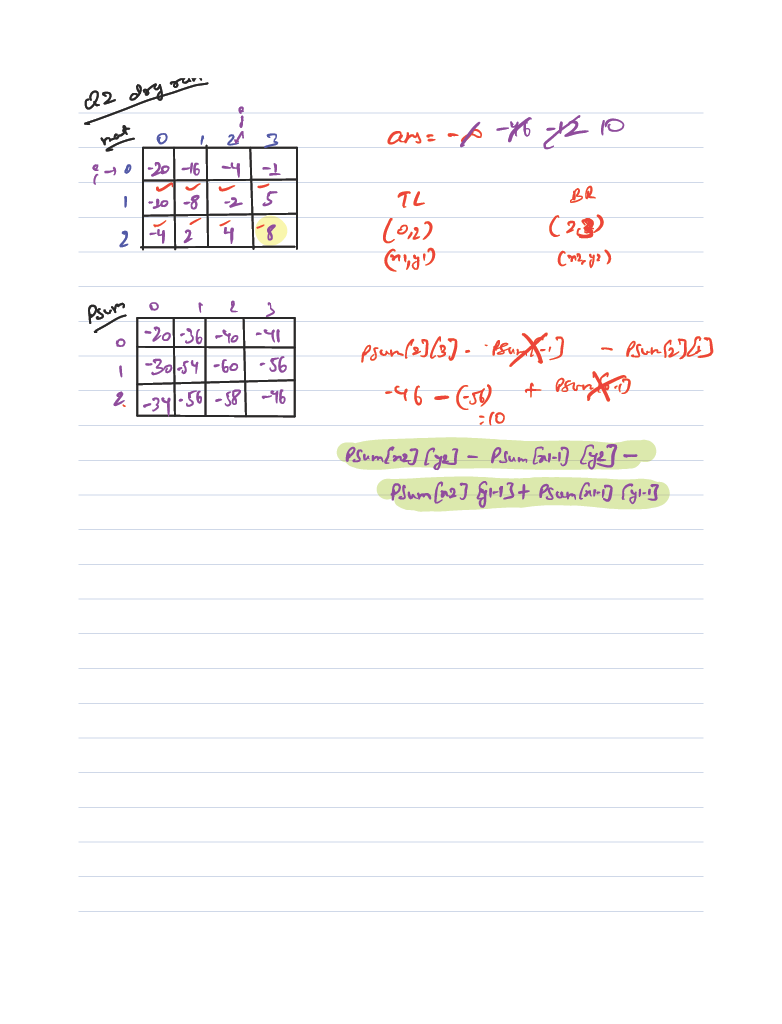 Q2 dry run
mat 0 1 2 3 j
ans = -∞ -46 -12 10
i → 0 -20 -16 -4 -1
1 -10 -8 -2 5
2 -4 2 4 8
TL BR
(0,2) (2,3)
(x1,y1) (x2,y2)
Psum 0 1 2 3
0 -20 -36 -40 -41
1 -30 -54 -60 -56
2. -34 -56 -58 -46
Psum[2][3] - Psum[-1] - Psum[2][1]
-46 - (-56) + Psum[-1]
= 10
Psum[x2][y2] - Psum[x1-1][y2] -
Psum[x2][y1-1] + Psum[x1-1][y1-1]